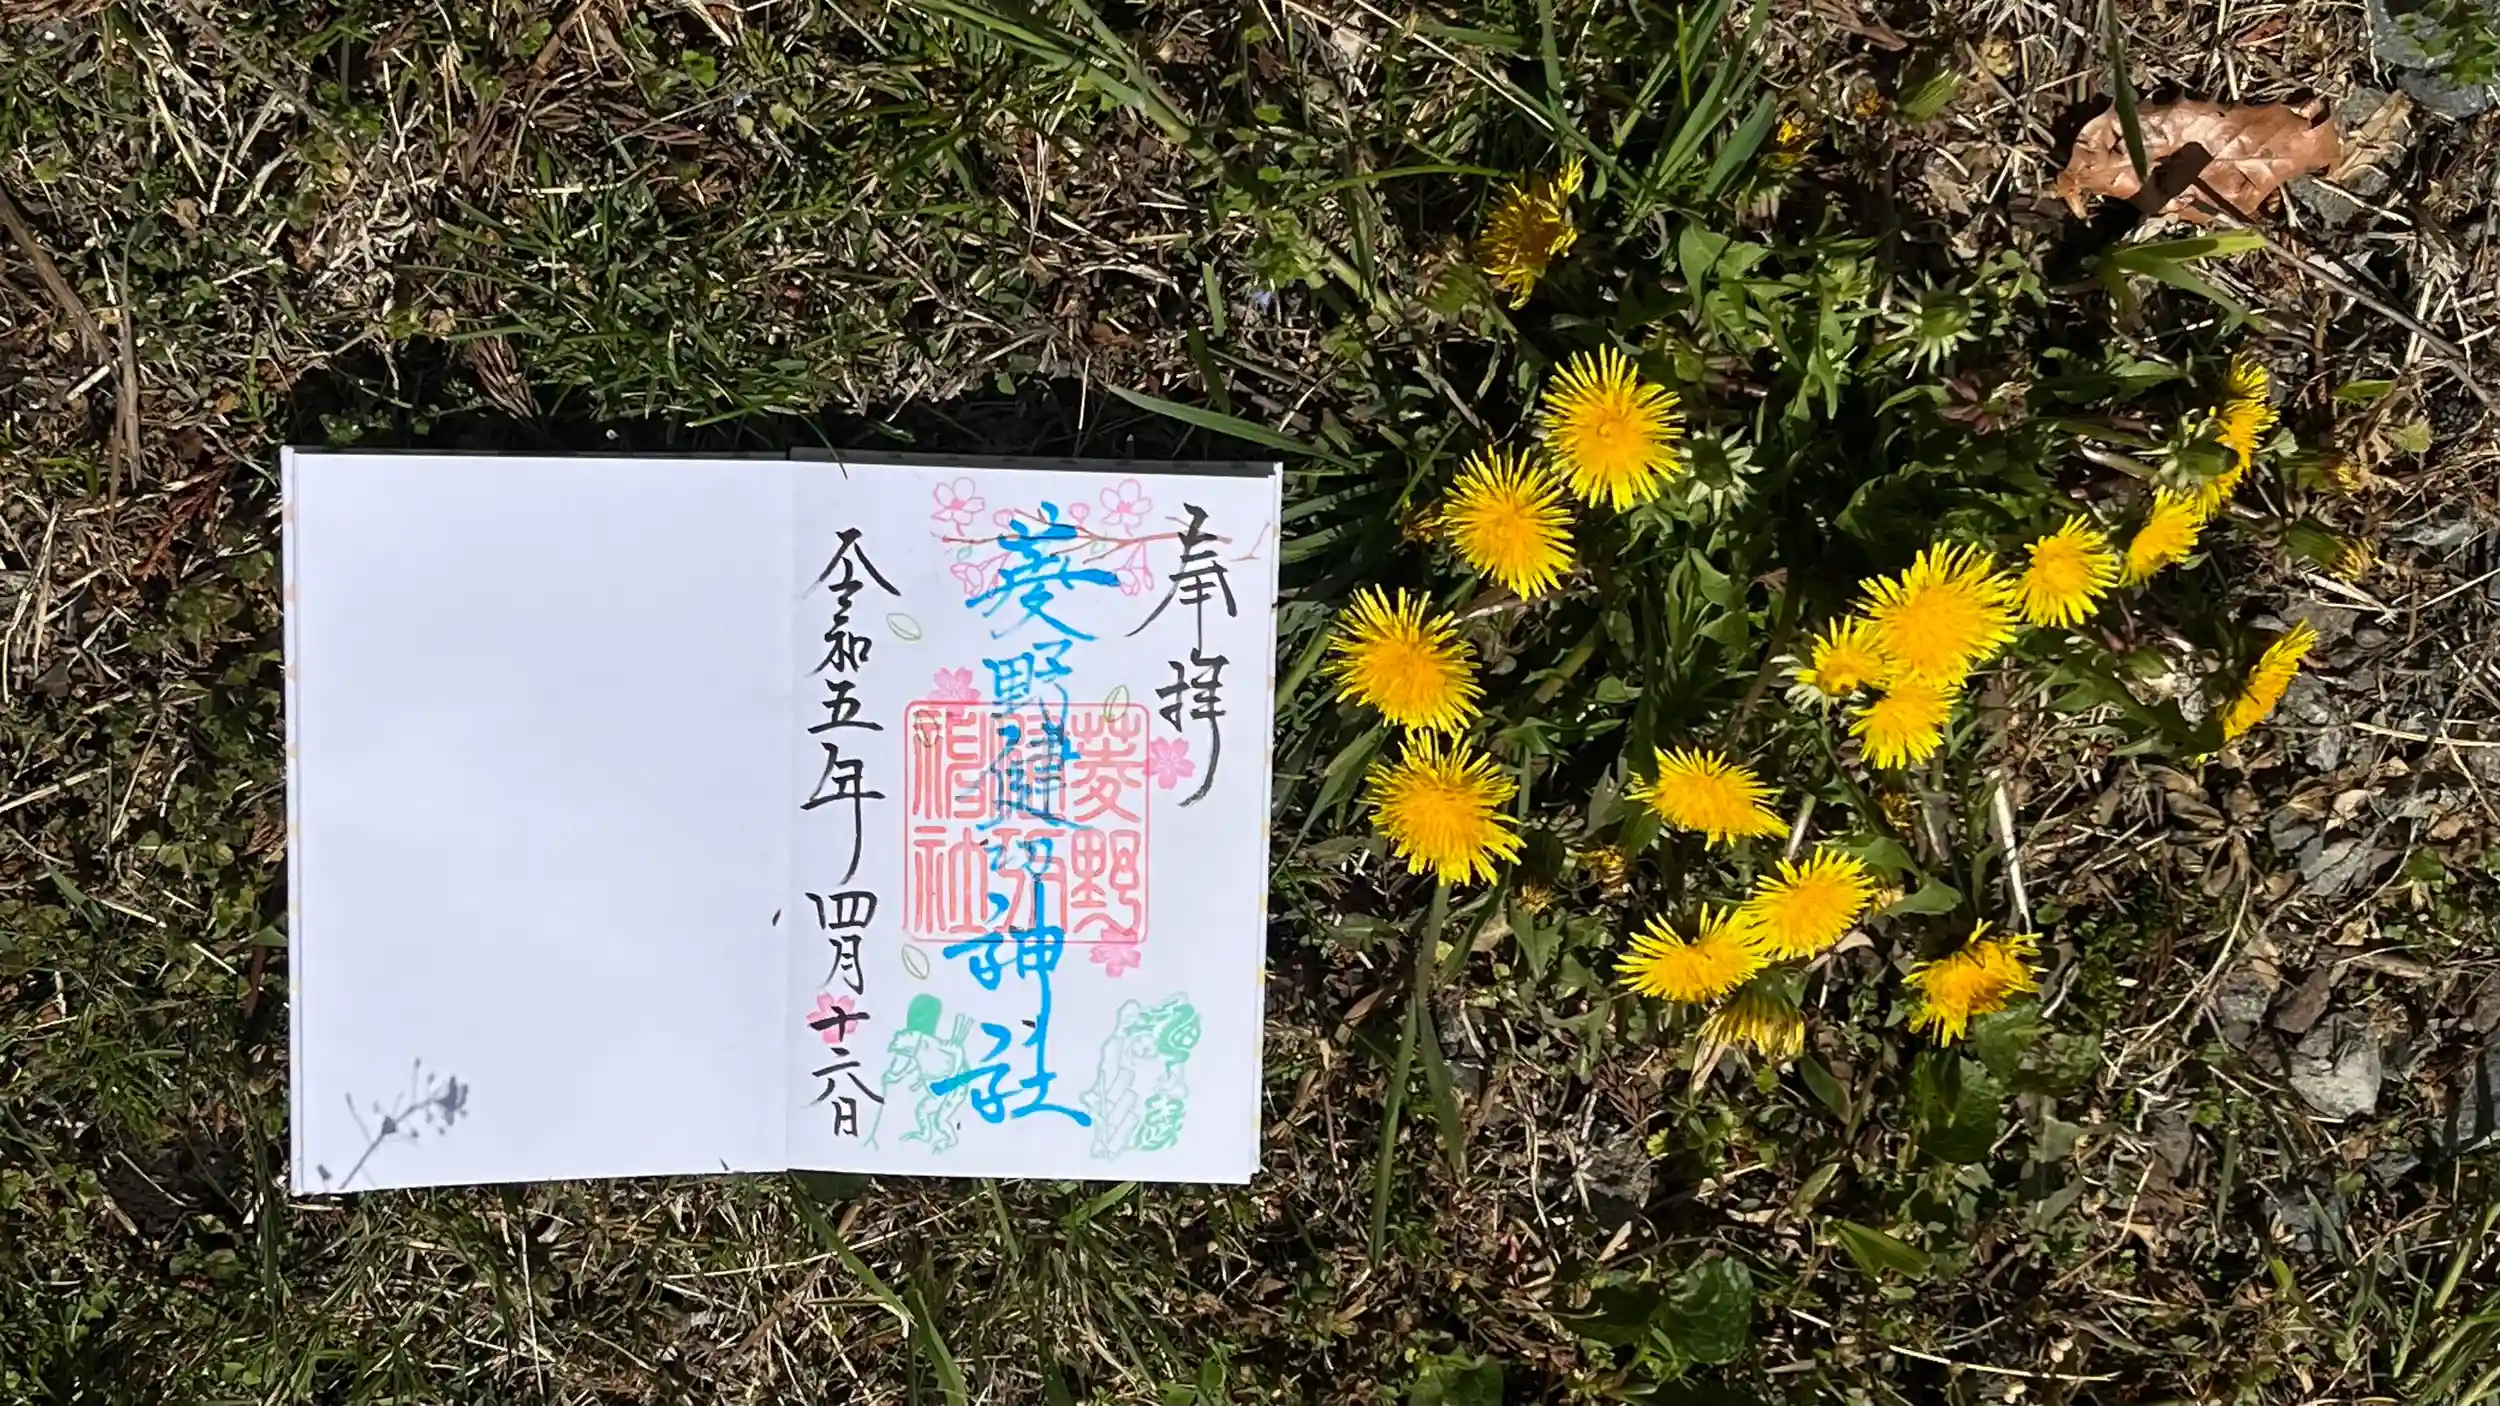 奉拝
菱野健功神社
令和五年四月十六日
菱野
健功
神社